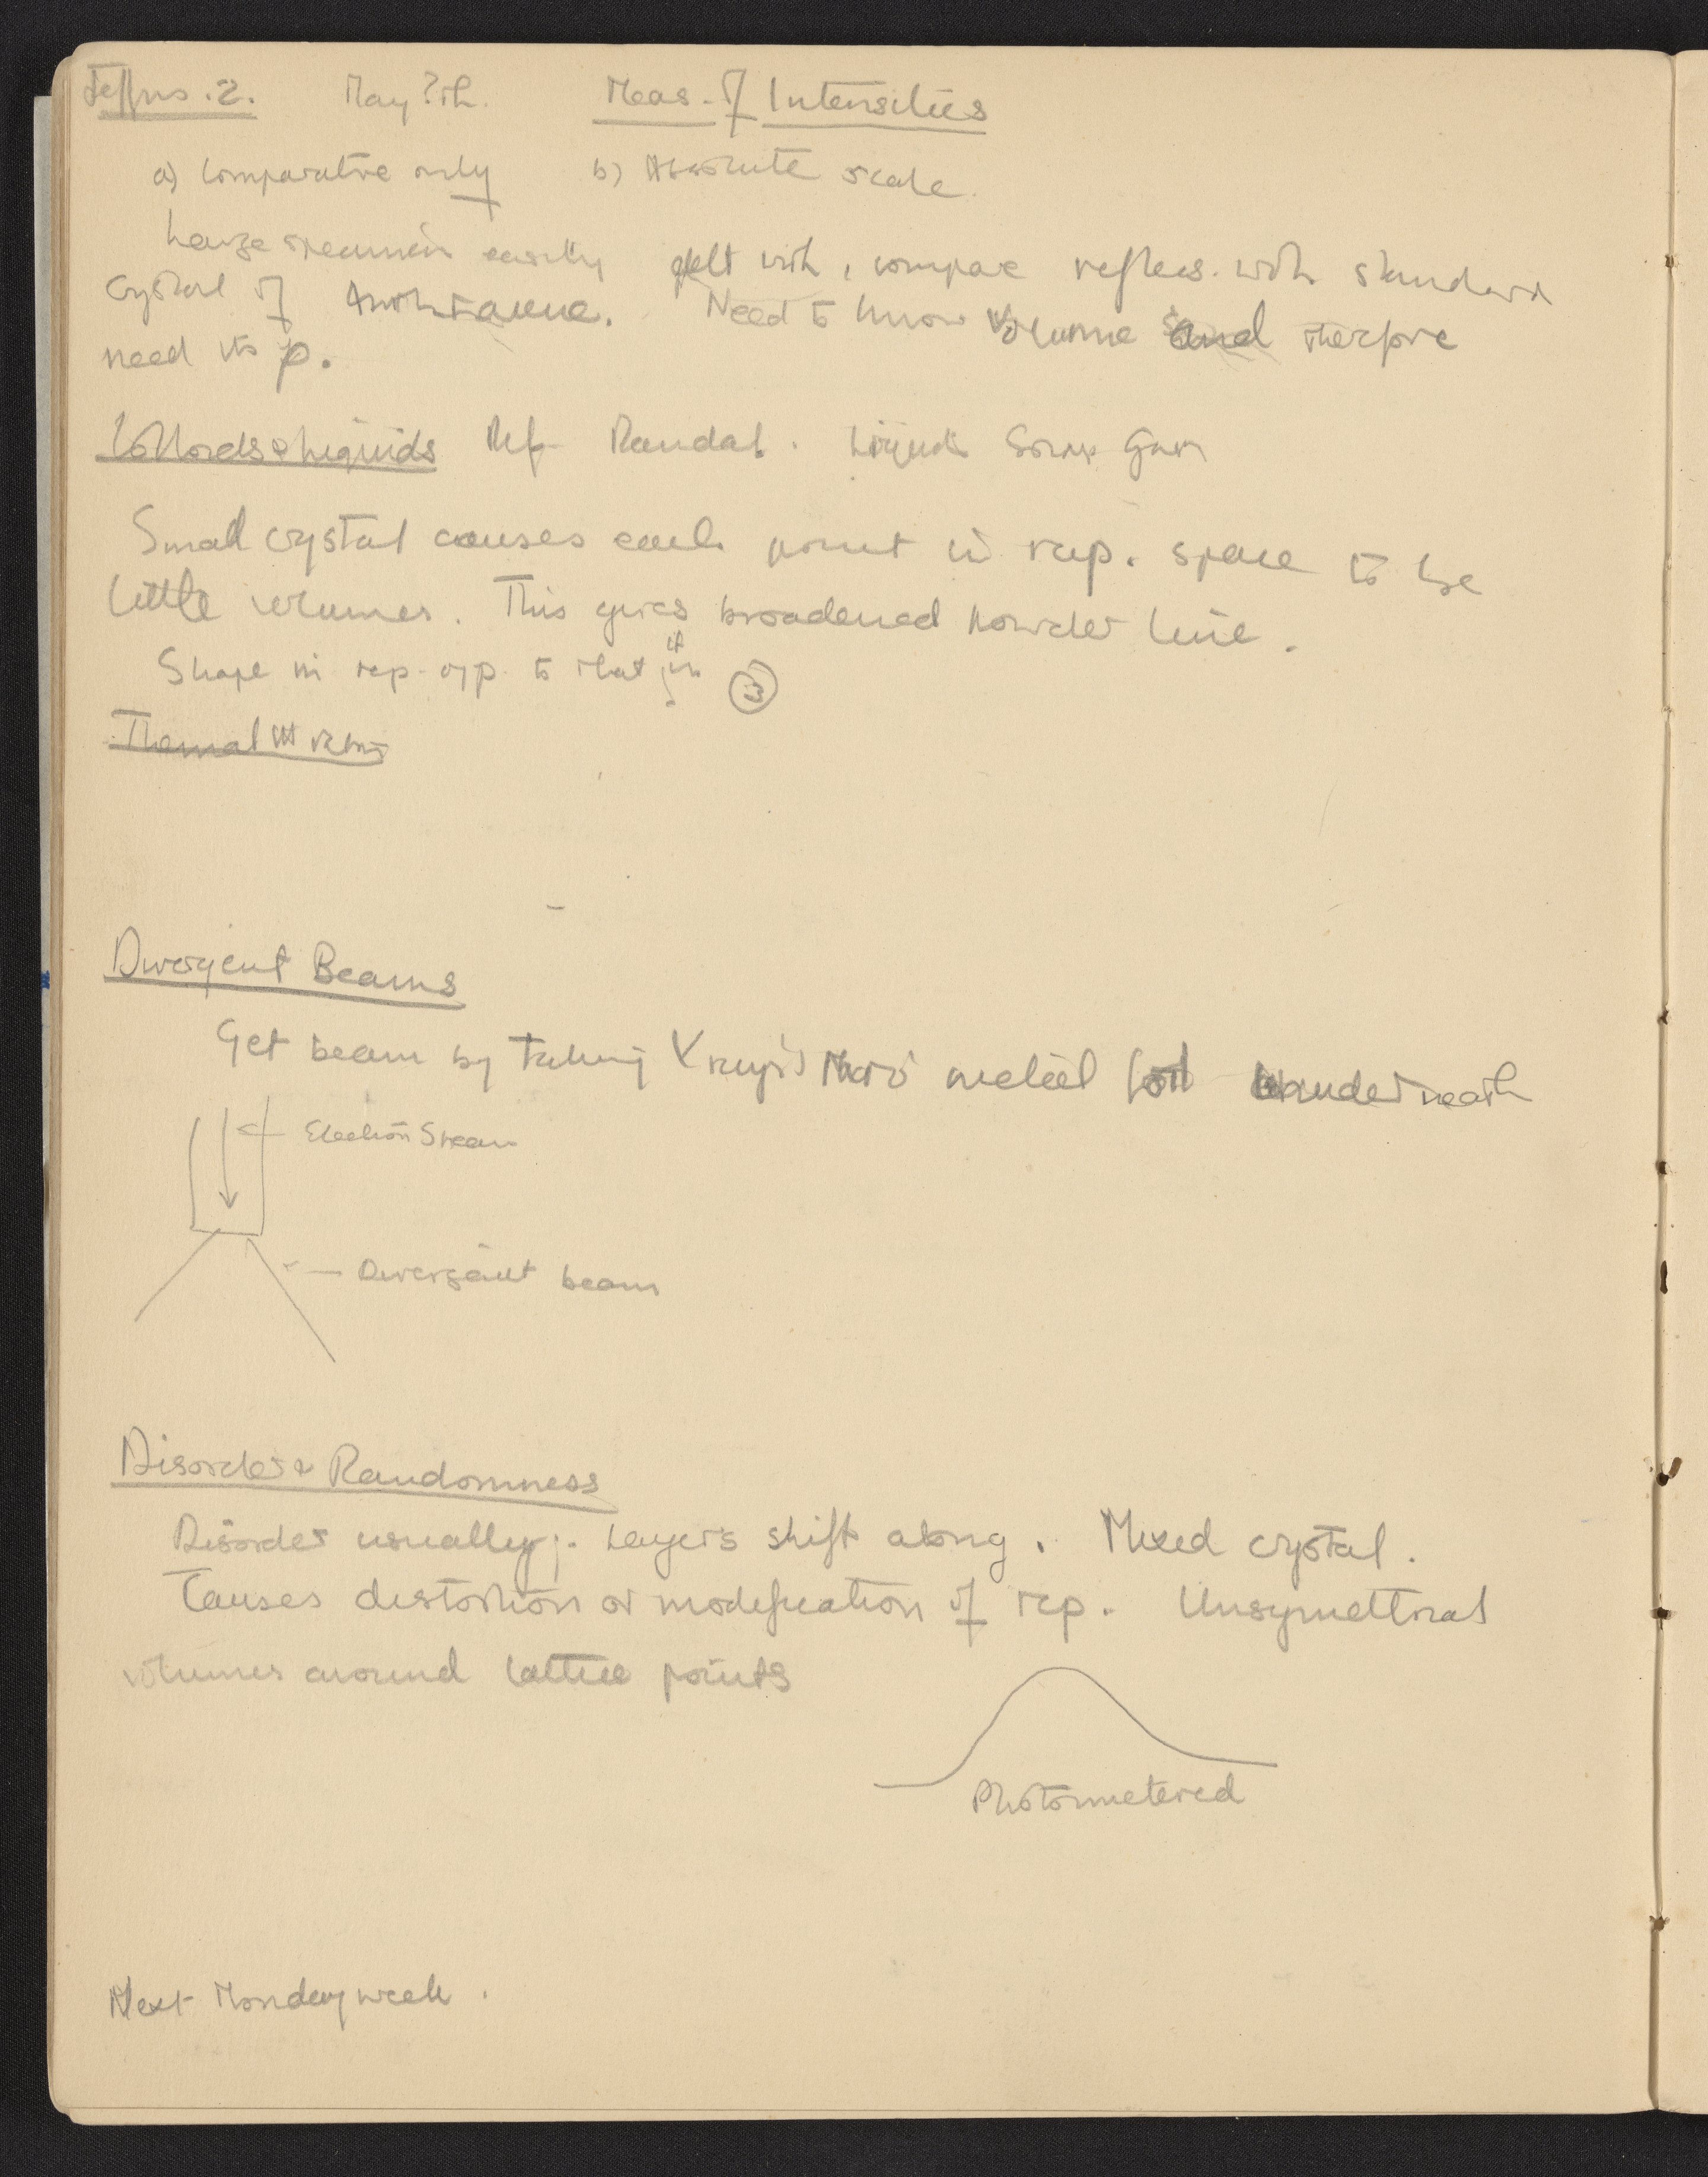 Jeffries. 2. May 7th. Meas. of Intensities
a) Comparative only b) Absolute scale.
Large specimen easily delt with, compare reflecs. with standard
crystal of Anthracene. Need to know volume and therfore
need its ρ.
Colloids & Liquids Ref Randal. Liquids
Small crystal causes each point in recip. space to be
little volumes. This gives broadened powder line.
Shape in recip. opp. to that in
Thermal
Divergent Beams
Get beam by taking X rays thro' metal foil underneath
Electron Stream
Divergent beam
Disorder & Randomness
Disorder usually; layers shift along. Mixed crystal.
Causes distortion or modification of rcp. Unsymettrical
volumes around lattice points
Photometered
Next Monday week.